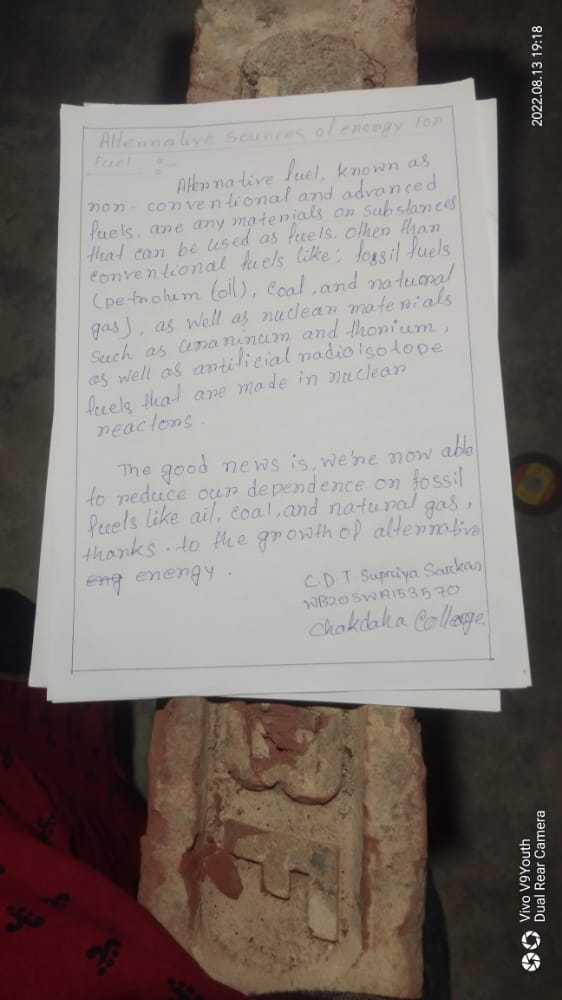 Alternative sources of energy for
Fuel :-
Alternative fuel, known as
non-conventional and advanced
fuels, are any materials or substances
that can be used as fuels. Other than
conventional fuels like: fossil fuels
(petrolum (oil), coal, and natural
gas), as well as nuclear materials
such as uraninum and thorium,
as well as antificial radioisotope
fuels that are made in nuclear
reactors.
The good news is, we're now able
to reduce our dependence on fossil
fuels like ail, coal, and natural gas,
thanks. to the growth of alternative
eng energy.
C.D.T. Supriya Sarkar
WB20SWA153570
Chakdaha College.
2022.08.13 19:18
Vivo V9Youth
Dual Rear Camera